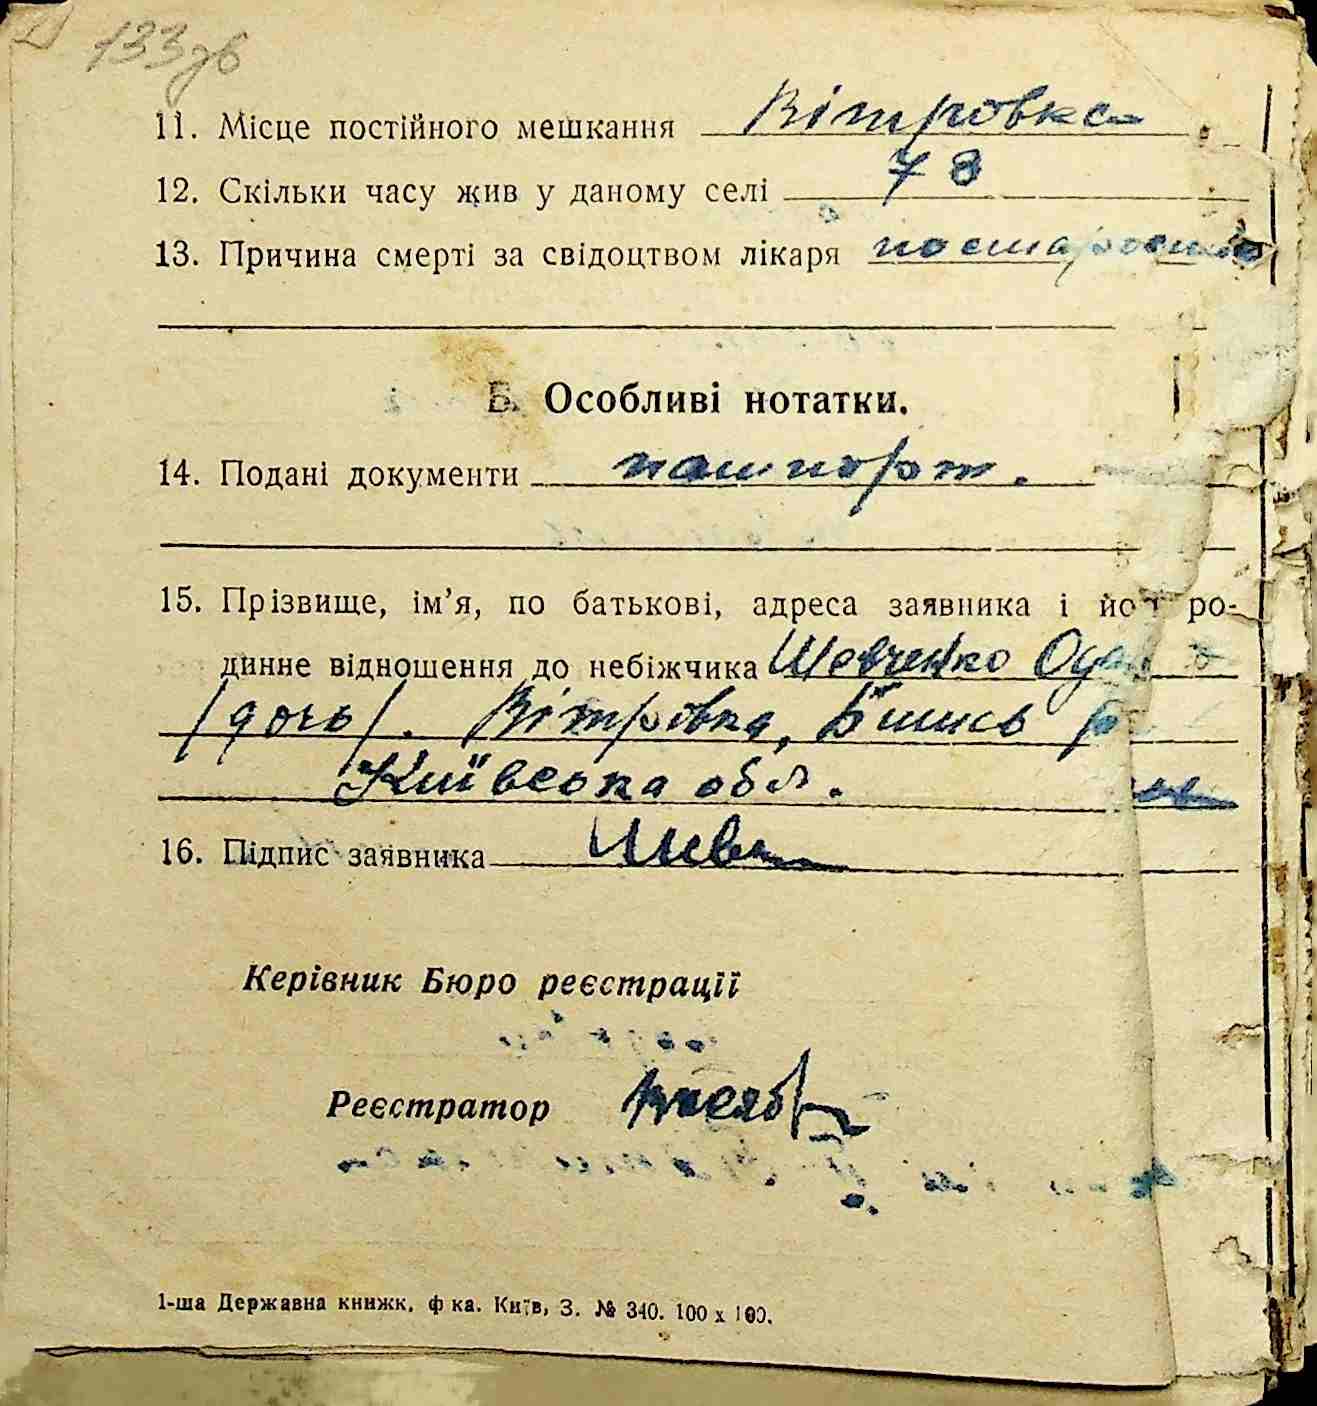 133зв
11. Місце постійного мешкання Вітровка
12. Скільки часу жив у даному селі 78
13. Причина смерті за свідоцтвом лікаря по старості
Б. Особливі нотатки.
14. Подані документи пашпорт.
15. Прізвище, ім’я, по батькові, адреса заявника і його ро-
динне відношення до небіжчика Шевченко
/дочь/. Вітровка,
Київська обл.
16. Підпис заявника Шевч
Керівник Бюро реєстрації
Реєстратор
1-ша Державна книжк. ф ка. Київ, З. № 340. 100 х 100.